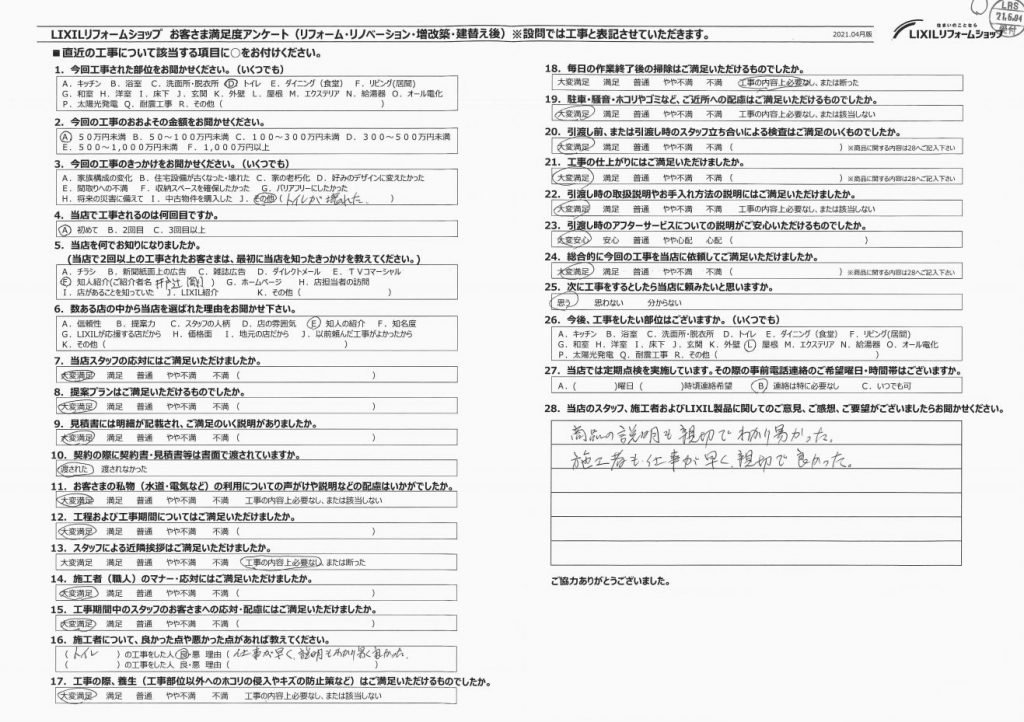 LIXILリフォームショップ　お客さま満足度アンケート（リフォーム・リノベーション・増改築・建替え後）※設問では工事と表記させていただきます。
2021.04月版
住まいのことなら
LIXILリフォームショップ
LRS
21.6.04
受付
■直近の工事について該当する項目に○をお付けください。
1．今回工事された部位をお聞かせください。（いくつでも）
A．キッチン B．浴室 C．洗面所・脱衣所 D．トイレ E．ダイニング（食堂） F．リビング(居間)
G．和室 H．洋室 I．床下 J．玄関 K．外壁 L．屋根 M．エクステリア N．給湯器 O．オール電化
P．太陽光発電 Q．耐震工事 R．その他（ ）
2．今回の工事のおおよその金額をお聞かせください。
A．50万円未満 B．50～100万円未満 C．100～300万円未満 D．300～500万円未満
E．500～1,000万円未満 F．1,000万円以上
3．今回の工事のきっかけをお聞かせください。（いくつでも）
A．家族構成の変化 B．住宅設備が古くなった・壊れた C．家の老朽化 D．好みのデザインに変えたかった
E．間取りへの不満 F．収納スペースを確保したかった G．バリアフリーにしたかった
H．将来の災害に備えて I．中古物件を購入した J．その他（トイレが壊れた．）
4．当店で工事されるのは何回目ですか。
A．初めて B．2回目 C．3回目以上
5．当店を何でお知りになりましたか。
(当店で2回以上の工事されたお客さまは、最初に当店を知ったきっかけを教えてください。)
A．チラシ B．新聞紙面上の広告 C．雑誌広告 D．ダイレクトメール E．TVコマーシャル
F．知人紹介(ご紹介者名 ) G．ホームページ H．店担当者の訪問
I．店があることを知っていた J．LIXIL紹介 K．その他（ ）
6．数ある店の中から当店を選ばれた理由をお聞かせ下さい。
A．信頼性 B．提案力 C．スタッフの人柄 D．店の雰囲気 E．知人の紹介 F．知名度
G．LIXILが応援する店だから H．価格面 I．地元の店だから J．以前頼んだ工事がよかったから
K．その他（ ）
7．当店スタッフの応対にはご満足いただけましたか。
大変満足 満足 普通 やや不満 不満（ ）
8．提案プランはご満足いただけるものでしたか。
大変満足 満足 普通 やや不満 不満（ ）
9．見積書には明細が記載され、ご満足のいく説明がありましたか。
大変満足 満足 普通 やや不満 不満（ ）
10．契約の際に契約書・見積書等は書面で渡されていますか。
渡された 渡されなかった
11．お客さまの私物（水道・電気など）の利用についての声がけや説明などの配慮はいかがでしたか。
大変満足 満足 普通 やや不満 不満 工事の内容上必要なし、または該当しない
12．工程および工事期間についてはご満足いただけましたか。
大変満足 満足 普通 やや不満 不満（ ）
13．スタッフによる近隣挨拶はご満足いただけましたか。
大変満足 満足 普通 やや不満 不満 工事の内容上必要なし、または断った
14．施工者（職人）のマナー・応対にはご満足いただけましたか。
大変満足 満足 普通 やや不満 不満（ ）
15．工事期間中のスタッフのお客さまへの応対・配慮にはご満足いただけましたか。
大変満足 満足 普通 やや不満 不満（ ）
16．施工者について、良かった点や悪かった点があれば教えてください。
（トイレ ）の工事をした人 良・悪 理由（仕事が早く、説明もわかり易く良かった．
（ ）の工事をした人 良・悪 理由（ ）
17．工事の際、養生（工事部位以外へのホコリの侵入やキズの防止策など）はご満足いただけるものでしたか。
大変満足 満足 普通 やや不満 不満 工事の内容上必要なし、または該当しない
18．毎日の作業終了後の掃除はご満足いただけるものでしたか。
大変満足 満足 普通 やや不満 不満 工事の内容上必要なし、または断った
19．駐車・騒音・ホコリやゴミなど、ご近所への配慮はご満足いただけるものでしたか。
大変満足 満足 普通 やや不満 不満 工事の内容上必要なし、または該当しない
20．引渡し前、または引渡し時のスタッフ立ち合いによる検査はご満足のいくものでしたか。
大変満足 満足 普通 やや不満 不満（ ）※商品に関する内容は28へご記入下さい
21．工事の仕上がりにはご満足いただけましたか。
大変満足 満足 普通 やや不満 不満（ ）※商品に関する内容は28へご記入下さい
22．引渡し時の取扱説明やお手入れ方法の説明にはご満足いただけましたか。
大変満足 満足 普通 やや不満 不満 工事の内容上必要なし、または該当しない
23．引渡し時のアフターサービスについての説明がご安心いただけるものでしたか。
大変安心 安心 普通 やや心配 心配（ ）
24．総合的に今回の工事を当店に依頼してご満足いただけましたか。
大変満足 満足 普通 やや不満 不満（ ）※商品に関する内容は28へご記入下さい
25．次に工事をするとしたら当店に頼みたいと思いますか。
思う 思わない 分からない
26．今後、工事をしたい部位はございますか。（いくつでも）
A．キッチン B．浴室 C．洗面所・脱衣所 D．トイレ E．ダイニング（食堂） F．リビング(居間)
G．和室 H．洋室 I．床下 J．玄関 K．外壁 L．屋根 M．エクステリア N．給湯器 O．オール電化
P．太陽光発電 Q．耐震工事 R．その他（ ）
27．当店では定期点検を実施しています。その際の事前電話連絡のご希望曜日・時間帯はございますか。
A．（ ）曜日（ ）時頃連絡希望 B．連絡は特に必要なし C．いつでも可
28．当店のスタッフ、施工者およびLIXIL製品に関してのご意見、ご感想、ご要望がございましたらお聞かせください。
商品の説明も親切でわかり易かった。
施工者も仕事が早く、親切で良かった。
ご協力ありがとうございました。